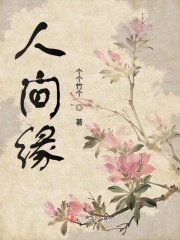 人间缘
个个竹个 著